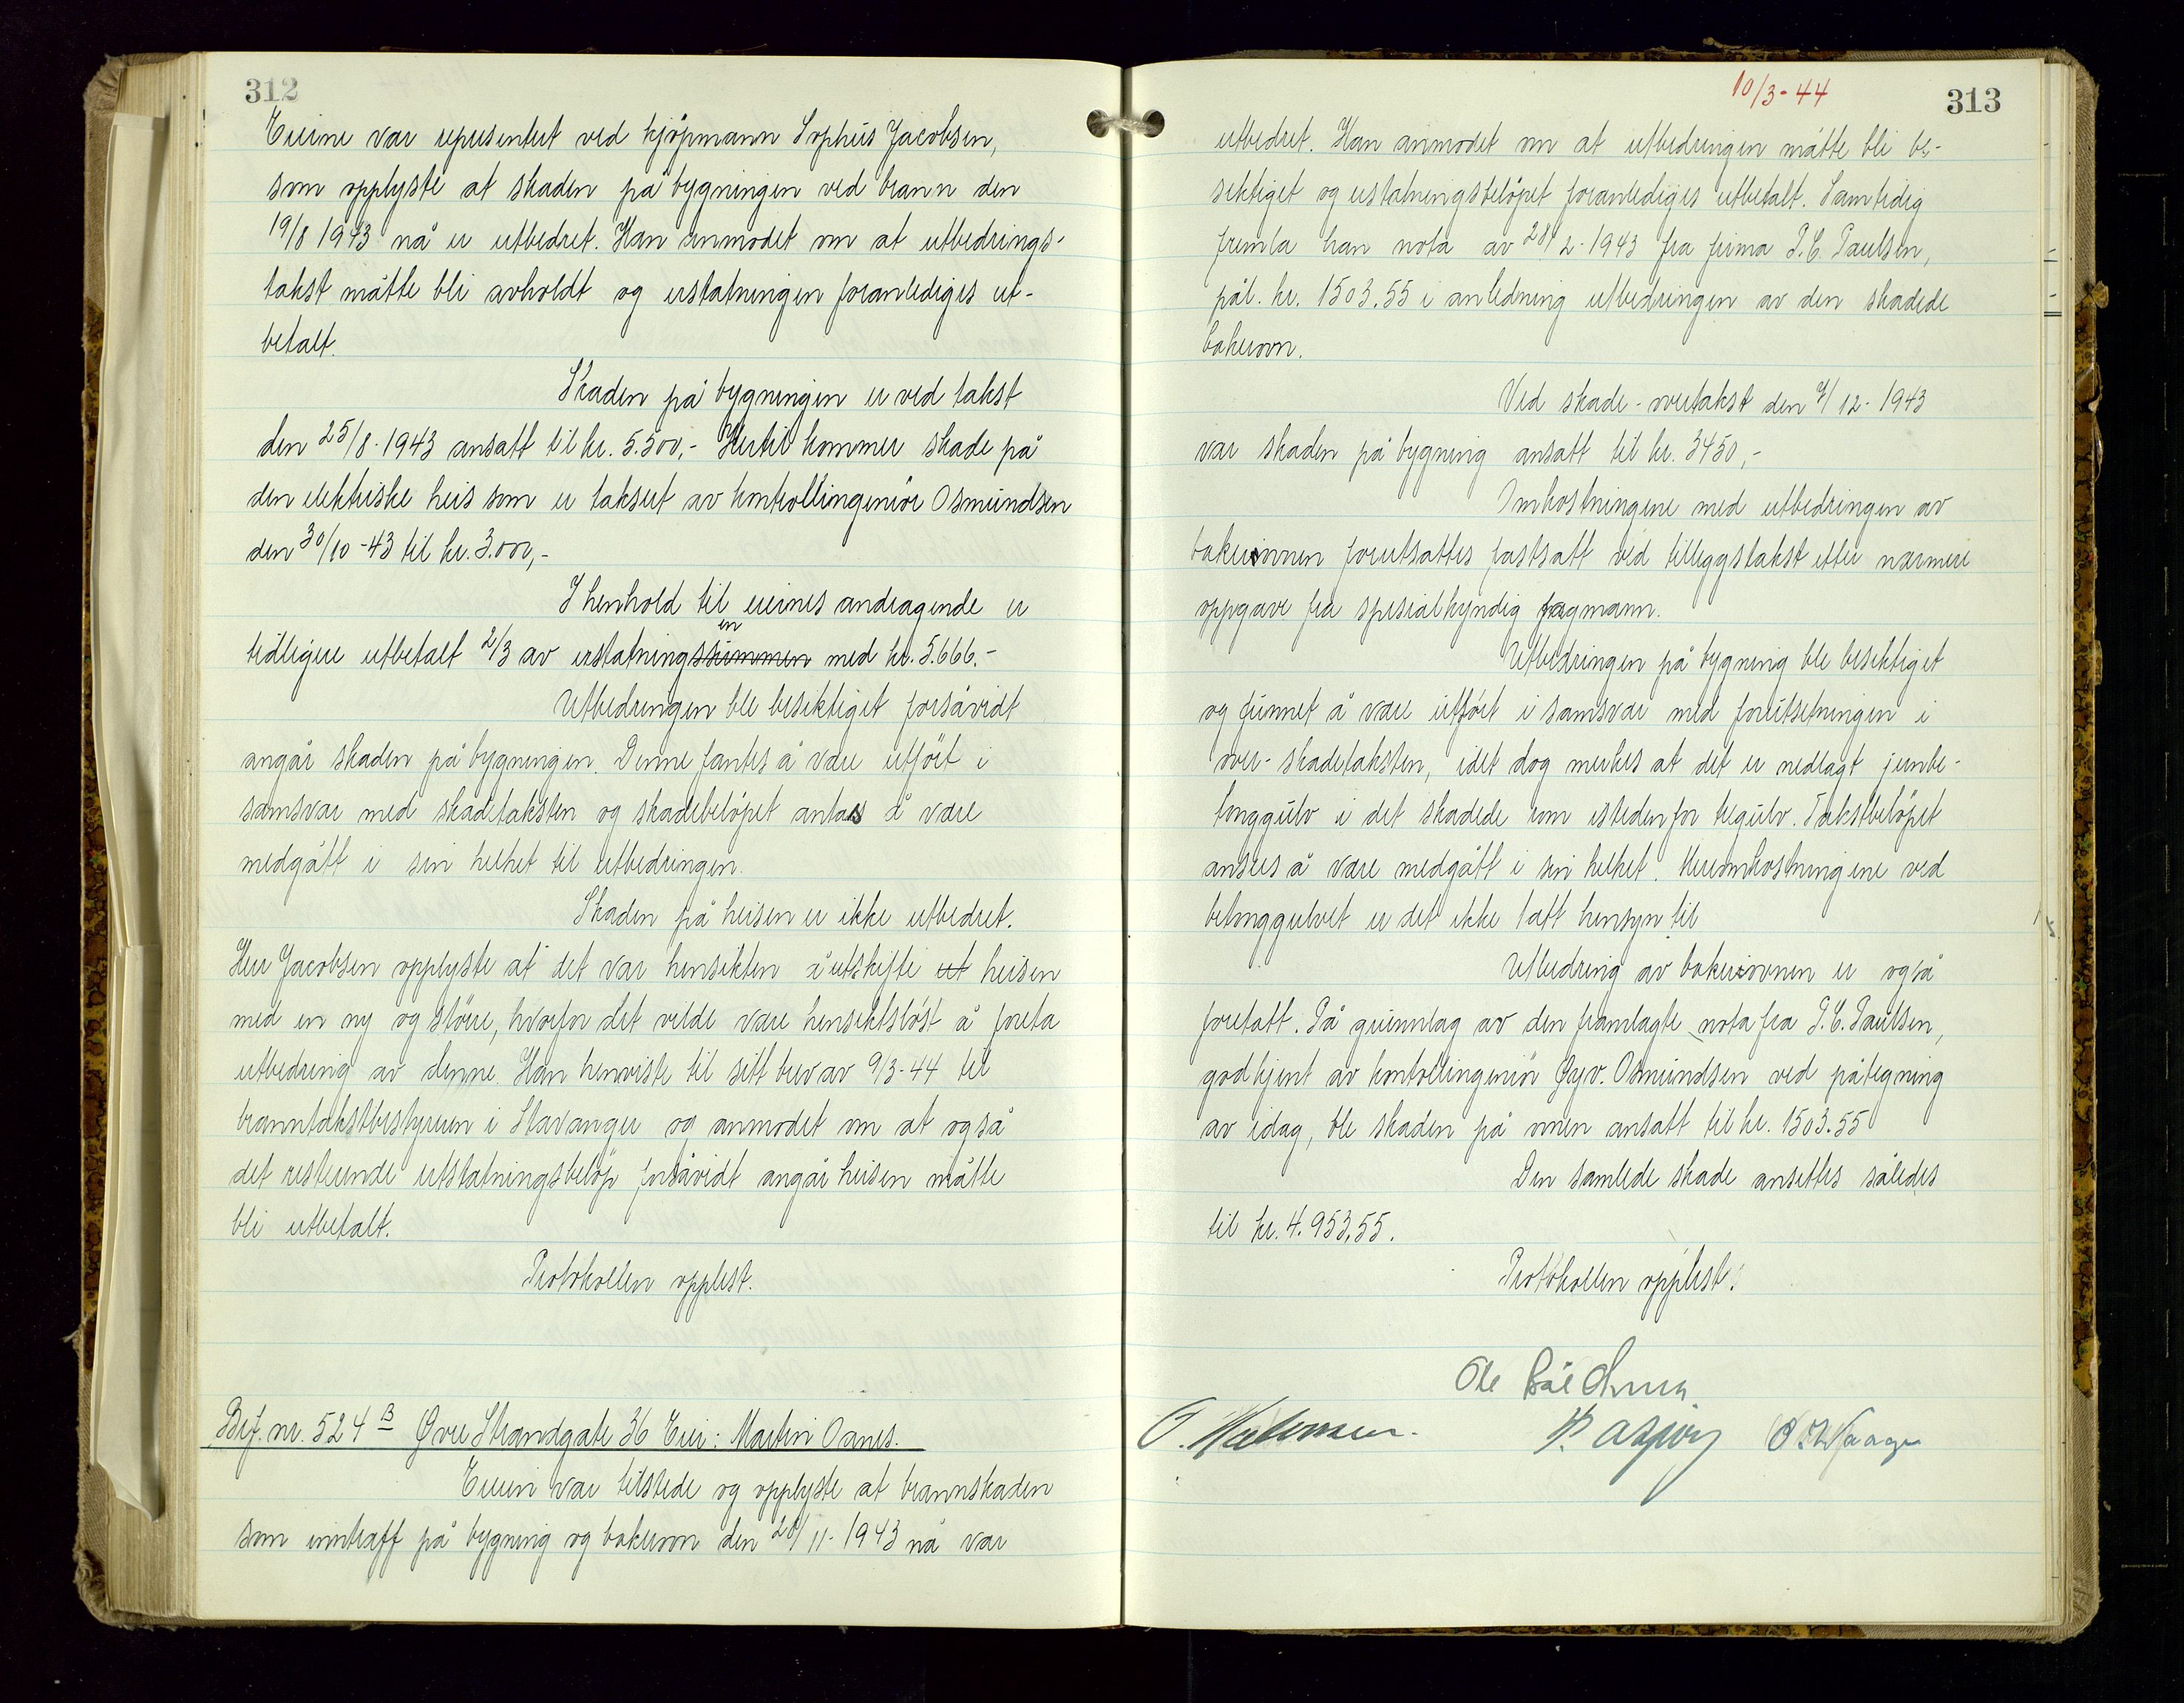 312
Eierne var representert ved kjöpmann Sophus Jacobsen,
som opplyste at skaden på bygningen ved brann den
19/8 1943 nå er utbedret. Han anmodet om at utbedrings-
takst måtte bli avholdt og erstatningen foranlediges ut-
betalt.
Skaden på bygningen er ved takst
den 25/8-1943 ansatt til kr. 5.500,- Hertil kommer skade på
den elektriske heis som er taksert av kontrollingeniör Osmundsen
den 30/10-43 til kr. 3.000,-
I henhold til eiernes andragende er
en
tidligere utbetalt 2/3 av erstatningssummen med kr. 5.666.-
Utbedringen ble besiktiget forsåvidt
angår skaden på bygningen. Denne fantes å være utfört i
samsvar med skadetaksten og skadebelöpet antas å være
medgått i sin helhet til utbedringen.
Skaden på heisen er ikke utbedret.
Herr Jacobsen opplyste at det var hensikten å utskifte ut heisen
med en ny og större, hvorfor det vilde være hensiktslöst å foreta
utbedring av denne. Han henviste til sitt brev av 9/3-44 til
branntakstbestyreren i Stavanger og anmodet om at også
det resterende erstatningsbelöp forsåvidt angår heisen måtte
bli utbetalt.
Protokollen opplest.
Brf. nr. 524 B Øvre Strandgate 36 Eier: Martin Oanes.
Eieren var tilstede og opplyste at brannskaden
som inntraff på bygning og bakerovn den 28/11-1943 nå var
10/3-44
313
utbedret. Han anmodet om at utbedringen måtte bli be-
siktiget og erstatningsbelöpet foranlediges utbetalt. Samtidig
fremla han nota av 28/2-1943 fra firma P.C. Paulsen,
pål. kr. 1503.55 i anledning utbedringen av den skadede
bakerovn.
Ved skade-overtakst den 7/12-1943
var skaden på bygning ansatt til kr. 3450,-
Omkostningene med utbedringen av
bakerovnen forutsattes fastsatt ved tilleggstakst etter nærmere
oppgave fra spesialkyndig fagmann.
Utbedringen på bygning ble besiktiget
og funnet å være utfört i samsvar med forutsetningen i
over-skadetaksten, idet dog merkes at det er nedlagt jernbe-
tonggulv i det skadede rom istedenfor tregulv. Takstbelöpet
ansees å være medgått i sin helhet. Meromkostningene ved
betonggulvet er det ikke tatt hensyn til
Utbedring av bakerovnen er også
foretatt. På grunnlag av den framlagte nota fra P.C. Paulsen,
godkjent av kontrollingeniör Øyv. Osmundsen ved påtegning
av idag, ble skaden på ovnen ansatt til kr. 1503.55
Den samlede skade ansettes således
til kr. 4.953,55.
Protokollen opplest.
Ole